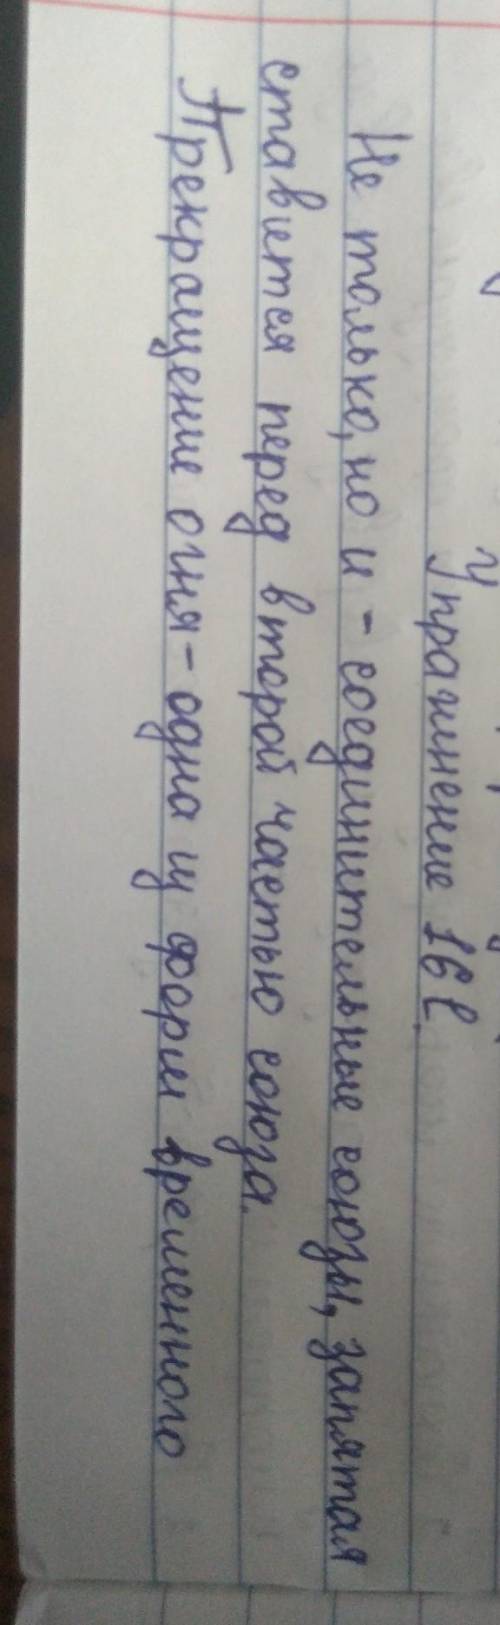 Упражнение 16 в
Не только, но и - соединительные союзы, запятая
ставится перед второй частью союза.
Прекращение огня - одна из форм временного